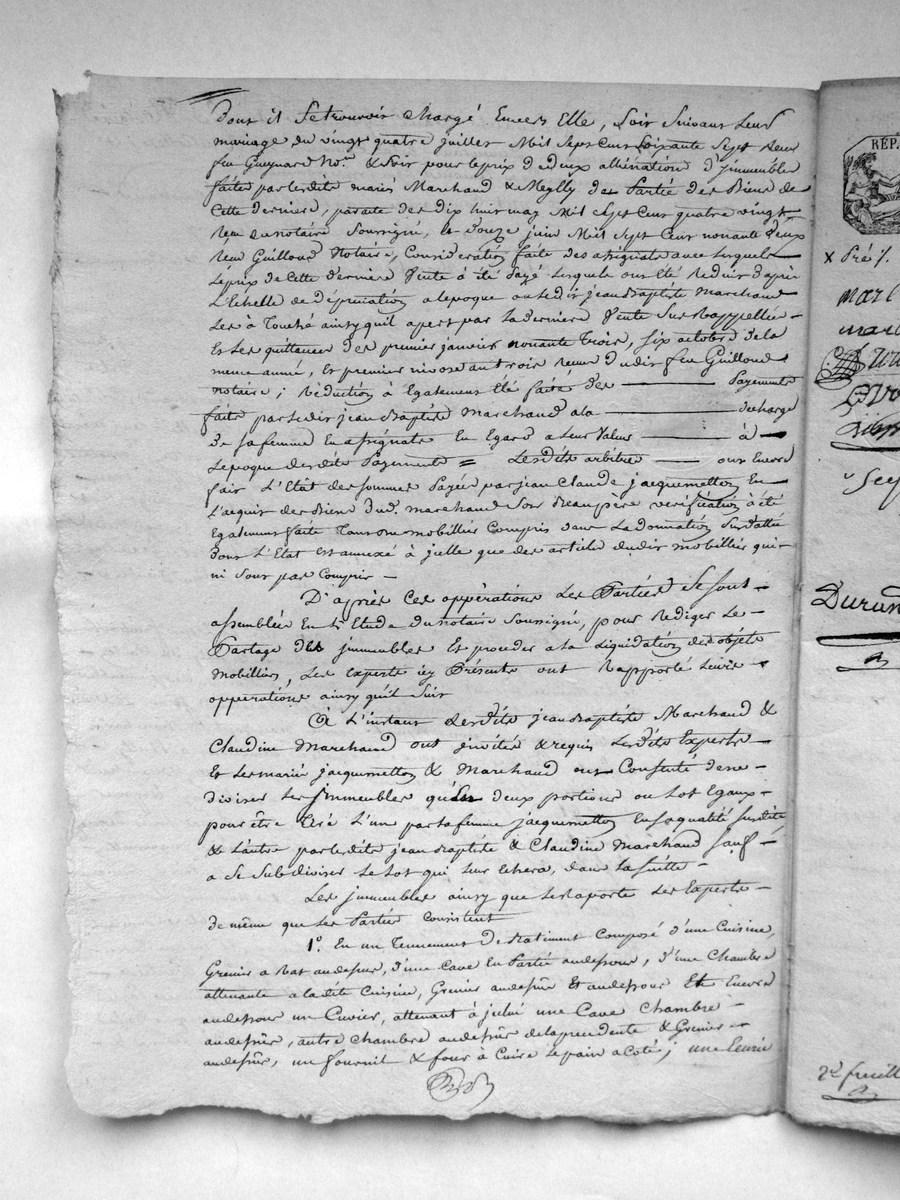 dont il se trouvoit chargé Envers Elle, soit suivant leur
mariage du vingt quatre juillet Mil sept cent soixante sept reçu
feu Guynard No.re & soit pour le prix d deux alliénations d'jmmeubles
faite par lesdits mariés Marchand & Meylly de Partie des Biens de
Cette derniere, par acte des dix huit may Mil sept Cent quatre vingt
reçu le notaire soussigné, et douze juin Mil sept Cent nonante deux
reçu Guilloud Notaire, Considération faite des assignats avec lesquels
le prix de Cette derniere Vente a été payé lesquels ont été réduit d'après
L'Echelle de dépréciation a l'epoque ou ledit jean Baptiste Marchand
les a Touché ainsy qu'il apert par la derniere Vente sus Rappellée
Et les quittances des premier janvier nonante trois, six octobre de la
meme année, Et premier nivose an trois reçues dudit feu Guilloud
notaire; Réduction a Egalement Eté faite des Payements
faits par ledit jean Baptiste Marchand a la décharge
de sa femme En assignats En Egard a Leur Valeur à
l'epoque desdits Payements = Lesdits arbitres ont Encore
fait L'Etat des sommes Payées par jean Claude jacquemetton En
L'acquit des Biens dud. marchand son Beaupère vérification a été
Egalement faite Tant du mobillier Compris dans La donnation susdattée
dont L'Etat est annexé à jcelle que des articles dudit mobillier qui
ni sont pas Compris
D'après Ces oppérations Les Parties se sont
assemblées En L'Etude du notaire soussigné, pour Rediger Le
Partage des jmmeubles Et proceder a la Liquidation des objets
mobilliers, Les Experts icy Présents ont Rapporté Leurs
oppérations ainsy qu'il suit
A L'instant lesdits jean Baptiste Marchand &
Claudine Marchand ont jnvités & requis lesdits Experts
Et les mariés jacquemetton & Marchand ont Consenti de ne
diviser les jmmeubles qu'En deux portions ou lot Egaux
pour être tiré L'un par la femme jacquemetton En sa qualité susdite
& L'autre par lesdits jean Baptiste & Claudine Marchand sauf
a se subdiviser le lot qui leur Echera, dans la suitte
Les jmmeubles ainsy que les Raporte les Experts
de même que les Parties Consistent
1.° En un Tennement de Batiment Composé d'une Cuisine,
Grenier a Bat au dessus, d'une Cave En Partie au dessous, d'une Chambre
attenante a la dite Cuisine, Grenier au dessus Et au dessous Et Encore
au dessous un Cuvier, attenant à jcelui une Cave Chambre
au dessus, autre Chambre au dessus de la precedente & Grenier
au dessus, un fournil & four à Cuire le pain a Coté; une Ecurie
RÉP.
x Pré
marc
marc
Durand
2.e feuill